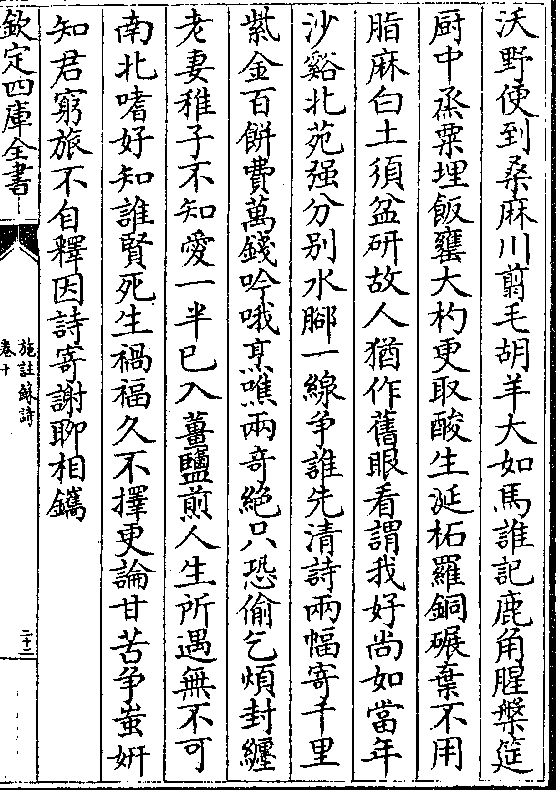 沃野便到桑麻川翦毛胡羊大如馬誰記鹿角腥槃筵
厨中烝粟埋飯罋大杓更取酸生涎柘羅銅碾棄不用
脂麻白土須盆研故人猶作舊眼看謂我好尚如當年
沙谿北苑强分别水腳一線争誰先清詩兩幅寄千里
紫金百餅費萬錢吟哦烹噍兩奇絶只恐偷乞煩封纒
老妻稚子不知愛一半已入薑鹽煎人生所遇無不可
南北嗜好知誰賢死生禍福久不擇更論甘苦争蚩妍
知君窮旅不自釋因詩寄謝聊相鐫
欽定四庫全書
施註蘇詩
卷十
二十三